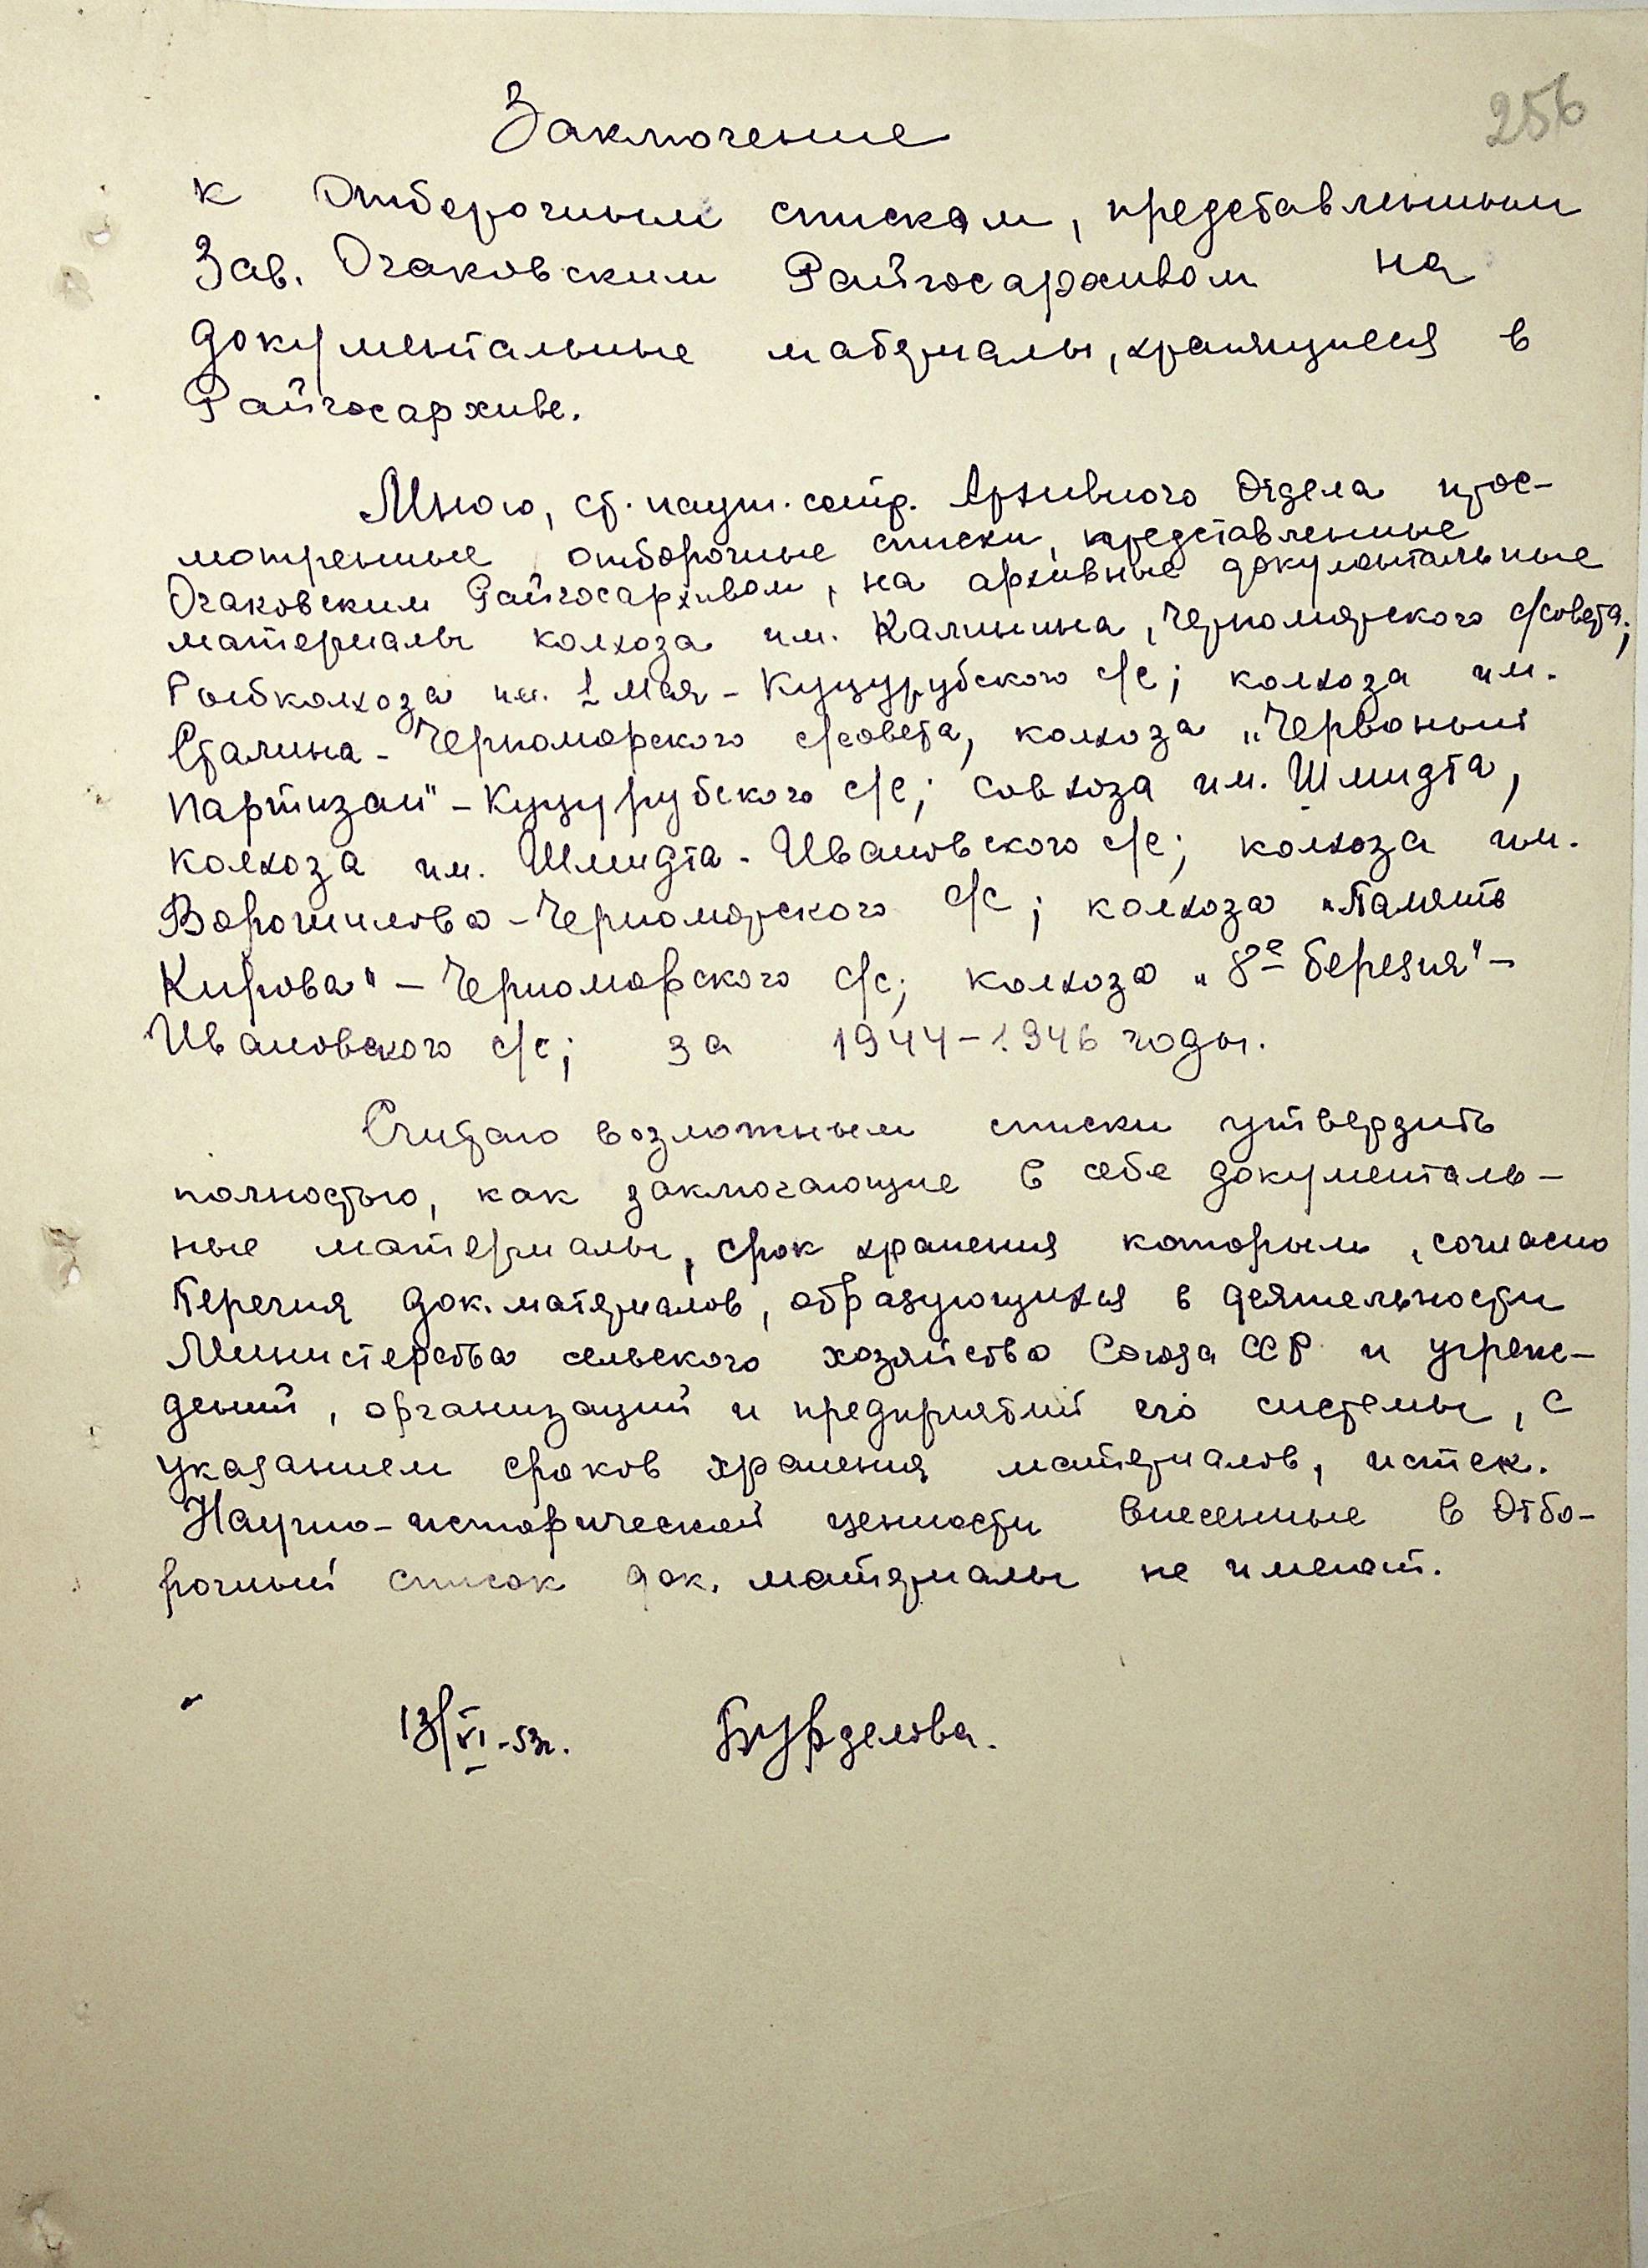 256
Заключение
к Отборочным спискам, представленным
Зав. Очаковским Райгосархивом на
документальные материалы, хранящиеся в
Райгосархиве.
Мною, ст. научн. сотр. Архивного Отдела прос-
мотренные отборочные списки, представленные
Очаковским Райгосархивом, на архивные документальные
материалы колхоза им. Калинина, Черноморского с/совета;
Рыбколхоза им. 1 Мая - Куцурубского с/с; колхоза им.
Сталина - Черноморского с/совета, колхоза "Червоный
партизан" - Куцурубского с/с; совхоза им. Шмидта,
колхоза им. Шмидта - Ивановского с/с; колхоза им.
Ворошилова - Черноморского с/с; колхоза "Память
Кирова" - Черноморского с/с; колхоза "8е березня" -
Ивановского с/с; за 1944-1946 годы.
Считаю возможным списки утвердить
полностью, как заключающие в себе документаль-
ные материалы, срок хранения которым, согласно
Перечня док. материалов, образующихся в деятельности
Министерства сельского хозяйства Союза ССР и учреж-
дений, организаций и предприятий его системы, с
указанием сроков хранения материалов, истек.
Научно-исторической ценности внесенные в Отбо-
рочный список док. материалы не имеют.
13/VI-53г. Бурделова.